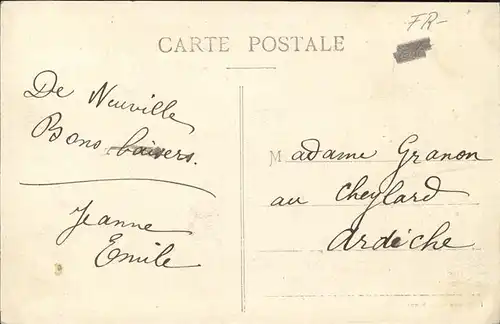 FR-
CARTE POSTALE
De Neuville
Bons baisers.
Jeanne
Emile
Madame Granon
au Cheylard
Ardèche